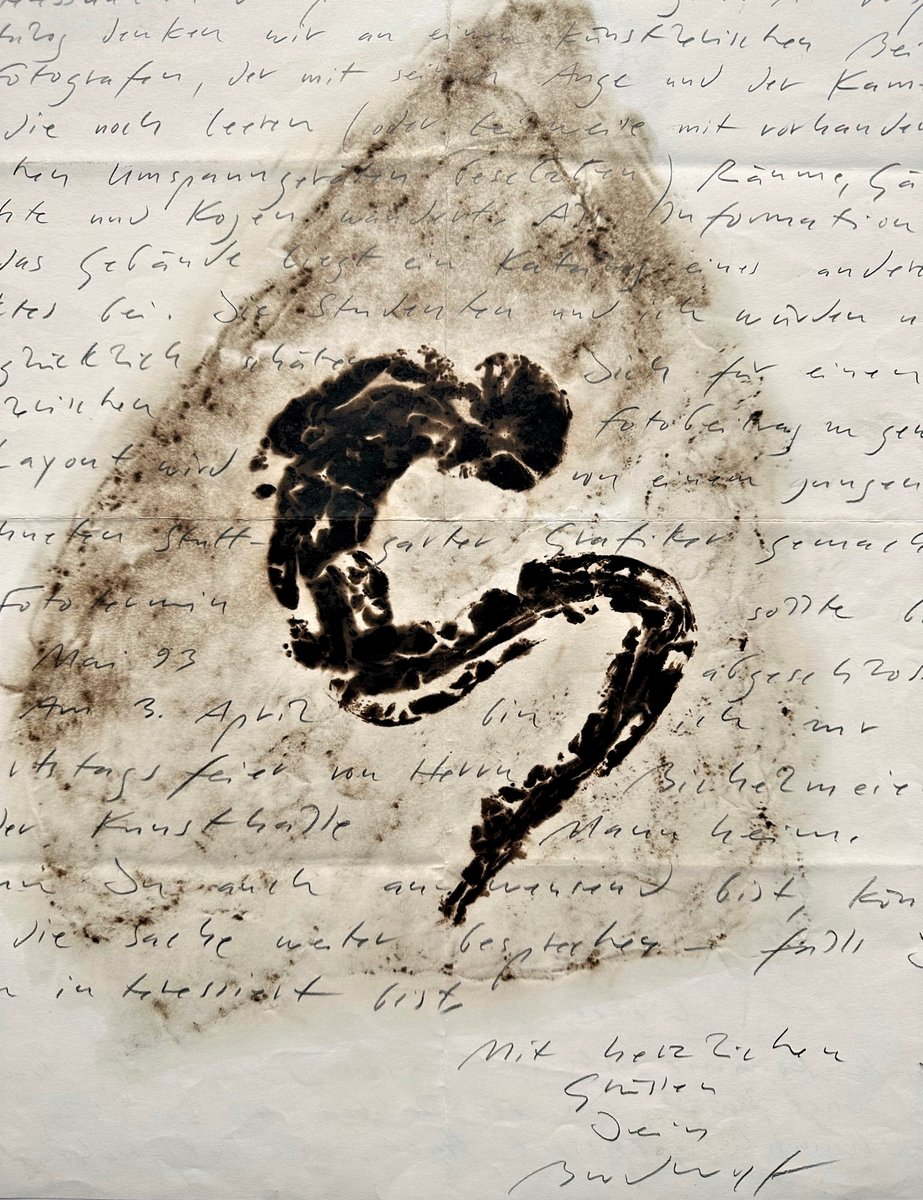 denken wir an einen künstlerischen Bei
Fotografen, der mit seinem Auge und der Kam-
die noch leeren (oder teilweise mit vorhanden
hen Umspanngeräten besetzten) Räume, Gä
hte und Kojen wanderte. Als Information
das Gebäude liegt ein Katalog eines andere
ktes bei. Die Studenten und ich würden u
glücklich schätzen Dich für einen
lerischen Fotobeitrag zu gew
Layout wird von einem jungen
hneten Stutt- garter Grafiker gemach
Fototermin sollte b
Mai 93 abgeschlos
Am 3. April bin ich zur
rtstagsfeier von Herrn
der Kunsthalle Mannheim.
nn Du auch anwesend bist, kön
die Sache weiter besprechen – falls D
n interessiert bist.
Mit herzlichen
Grüßen
Dein